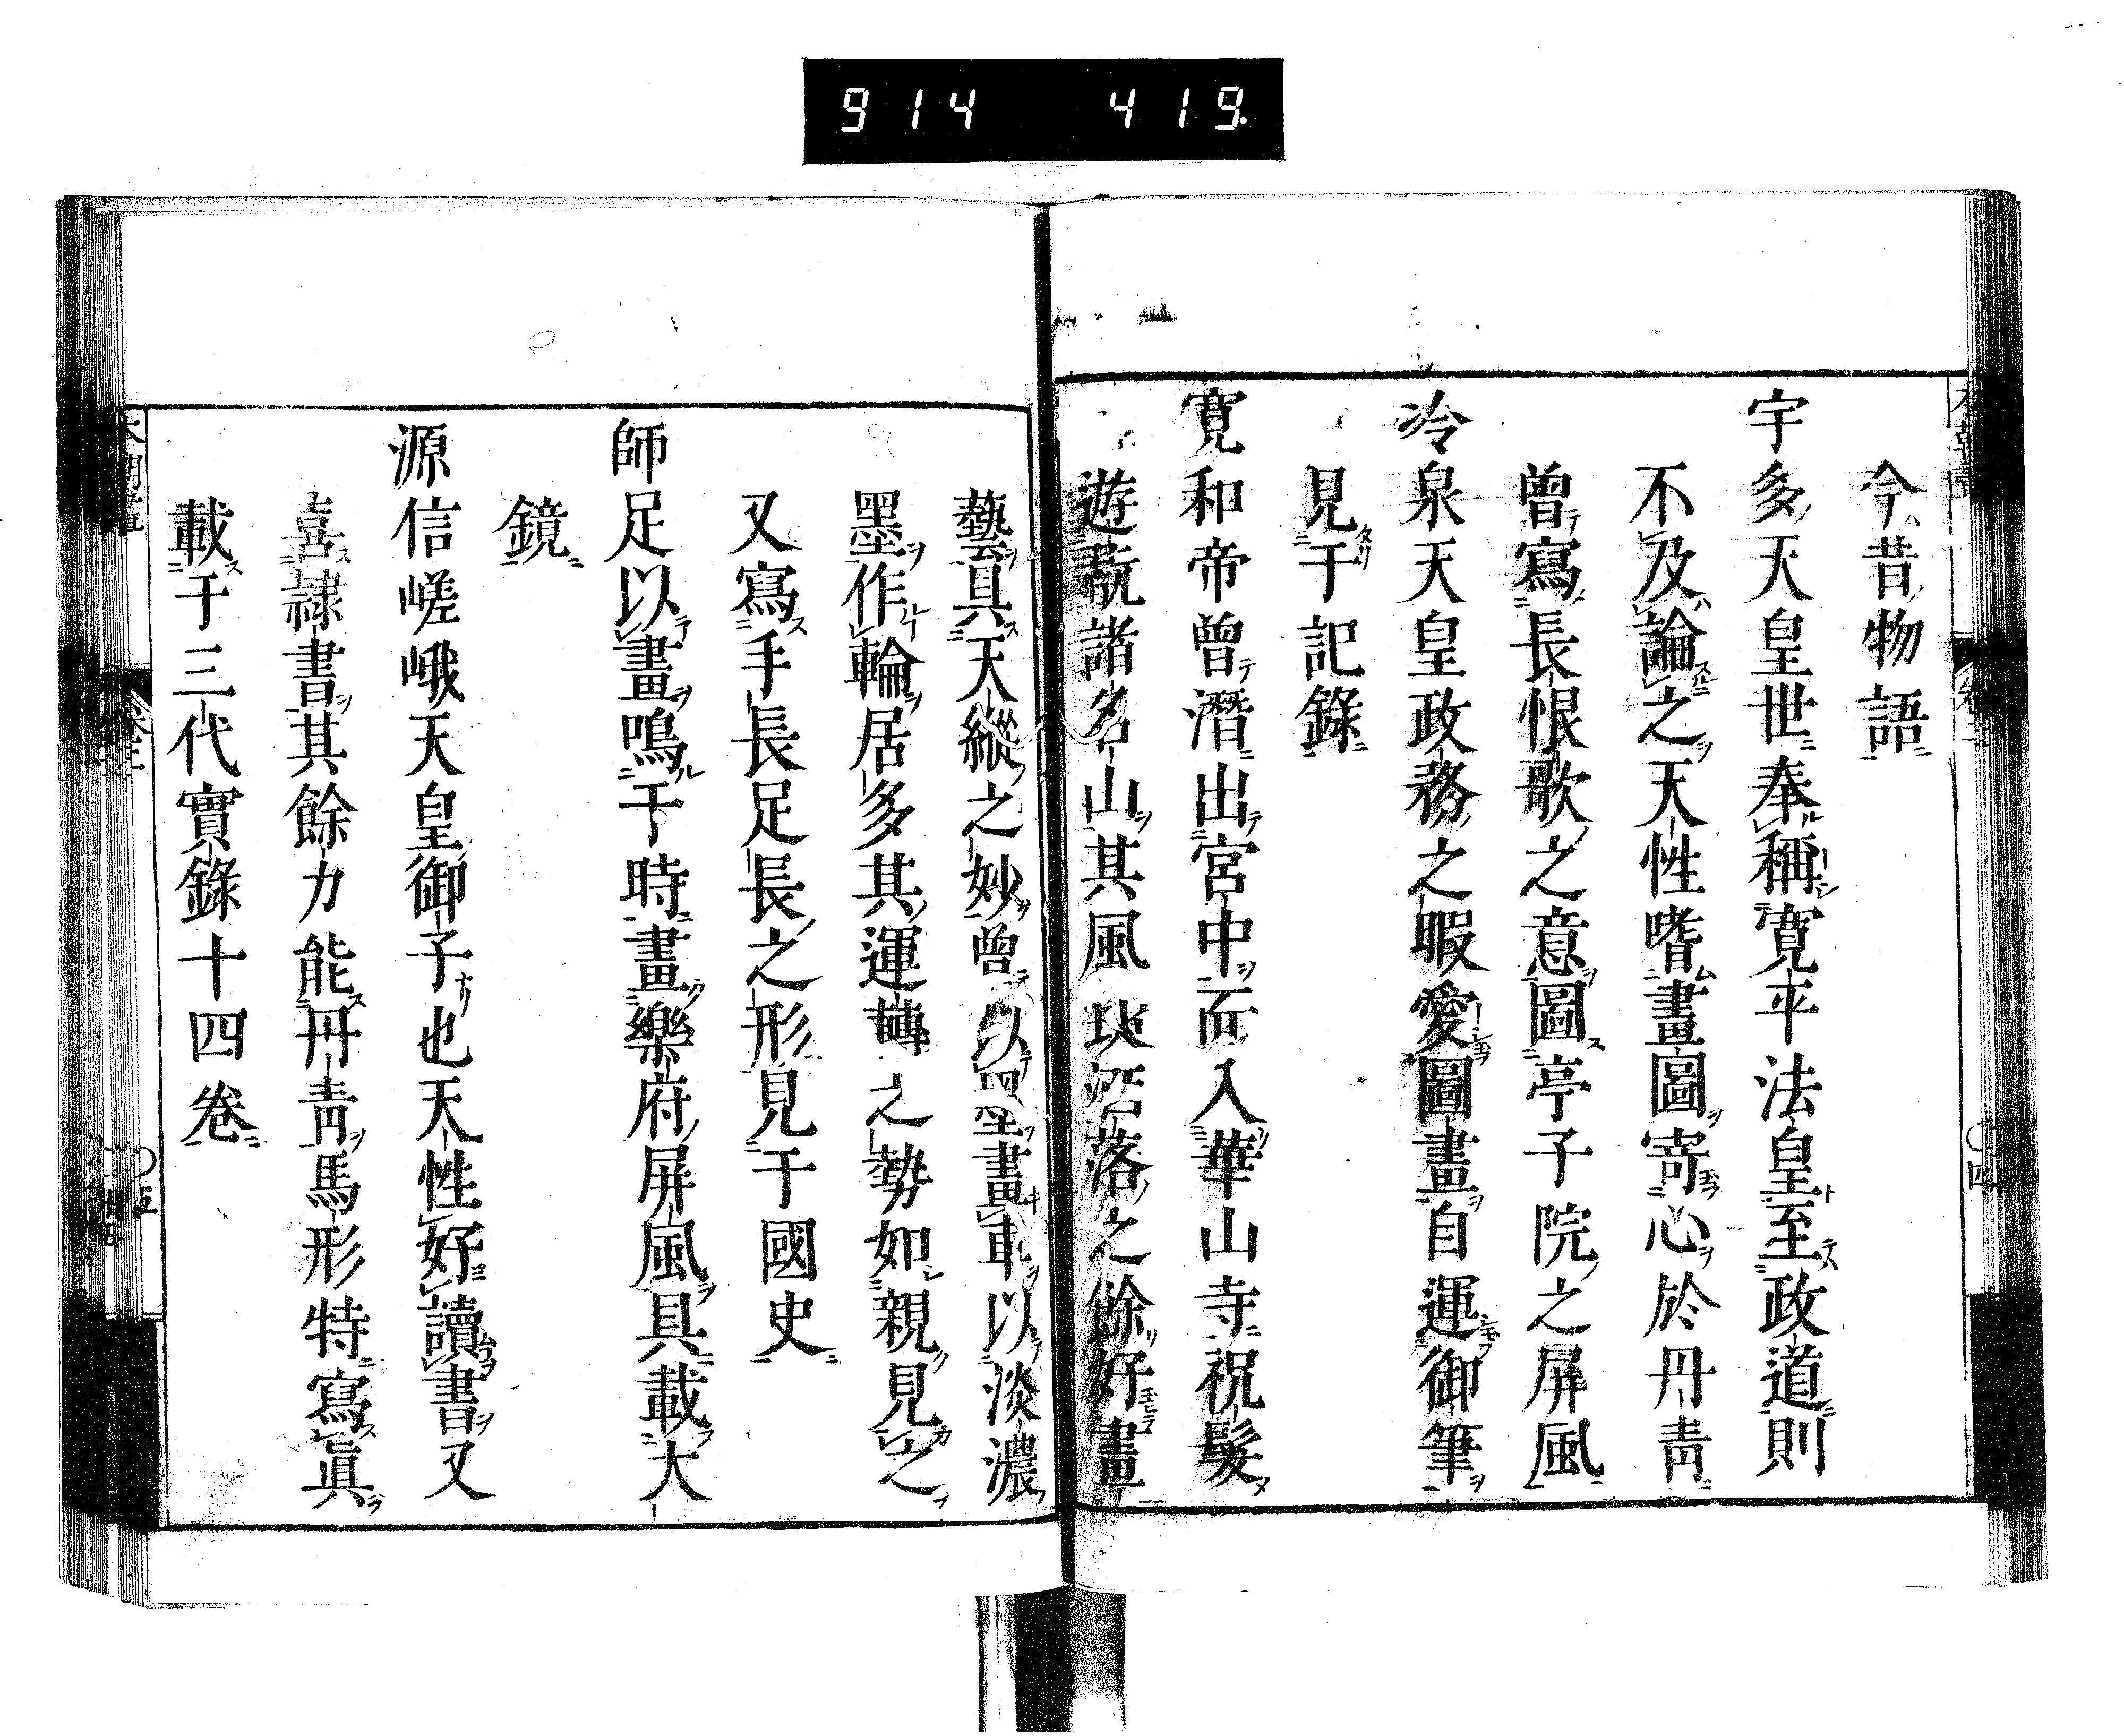 914 419
今昔物語
宇多天皇世奉稱寛平法皇至政道則
不及論之天性嗜畫圖寄心於丹靑
曽寫長恨歌之意圖亭子院之屏風
冷泉天皇政務之暇愛圖畫自運御筆
見于記錄
寛和帝曽潛出宮中而入華山寺祝髮
遊覽諸名山其風 落之餘好畫
藝具天縱之妙曽以墨畫車以淡濃
墨作輪居多其運轉之勢如親見之
又寫手長足長之形見于國史
師足以畫鳴于時畫樂府屏風具載大
鏡
源信嵯峨天皇御子也天性好讀書又
喜隷書其餘力能丹靑馬形特寫眞
載于三代實錄十四卷